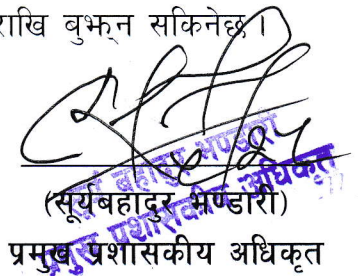 राखि बुझ्न सकिनेछ ।
सूर्य बहादुर भण्डारी
प्रमुख प्रशासकीय अधिकृत
(सूर्यबहादुर भण्डारी)
प्रमुख प्रशासकीय अधिकृत